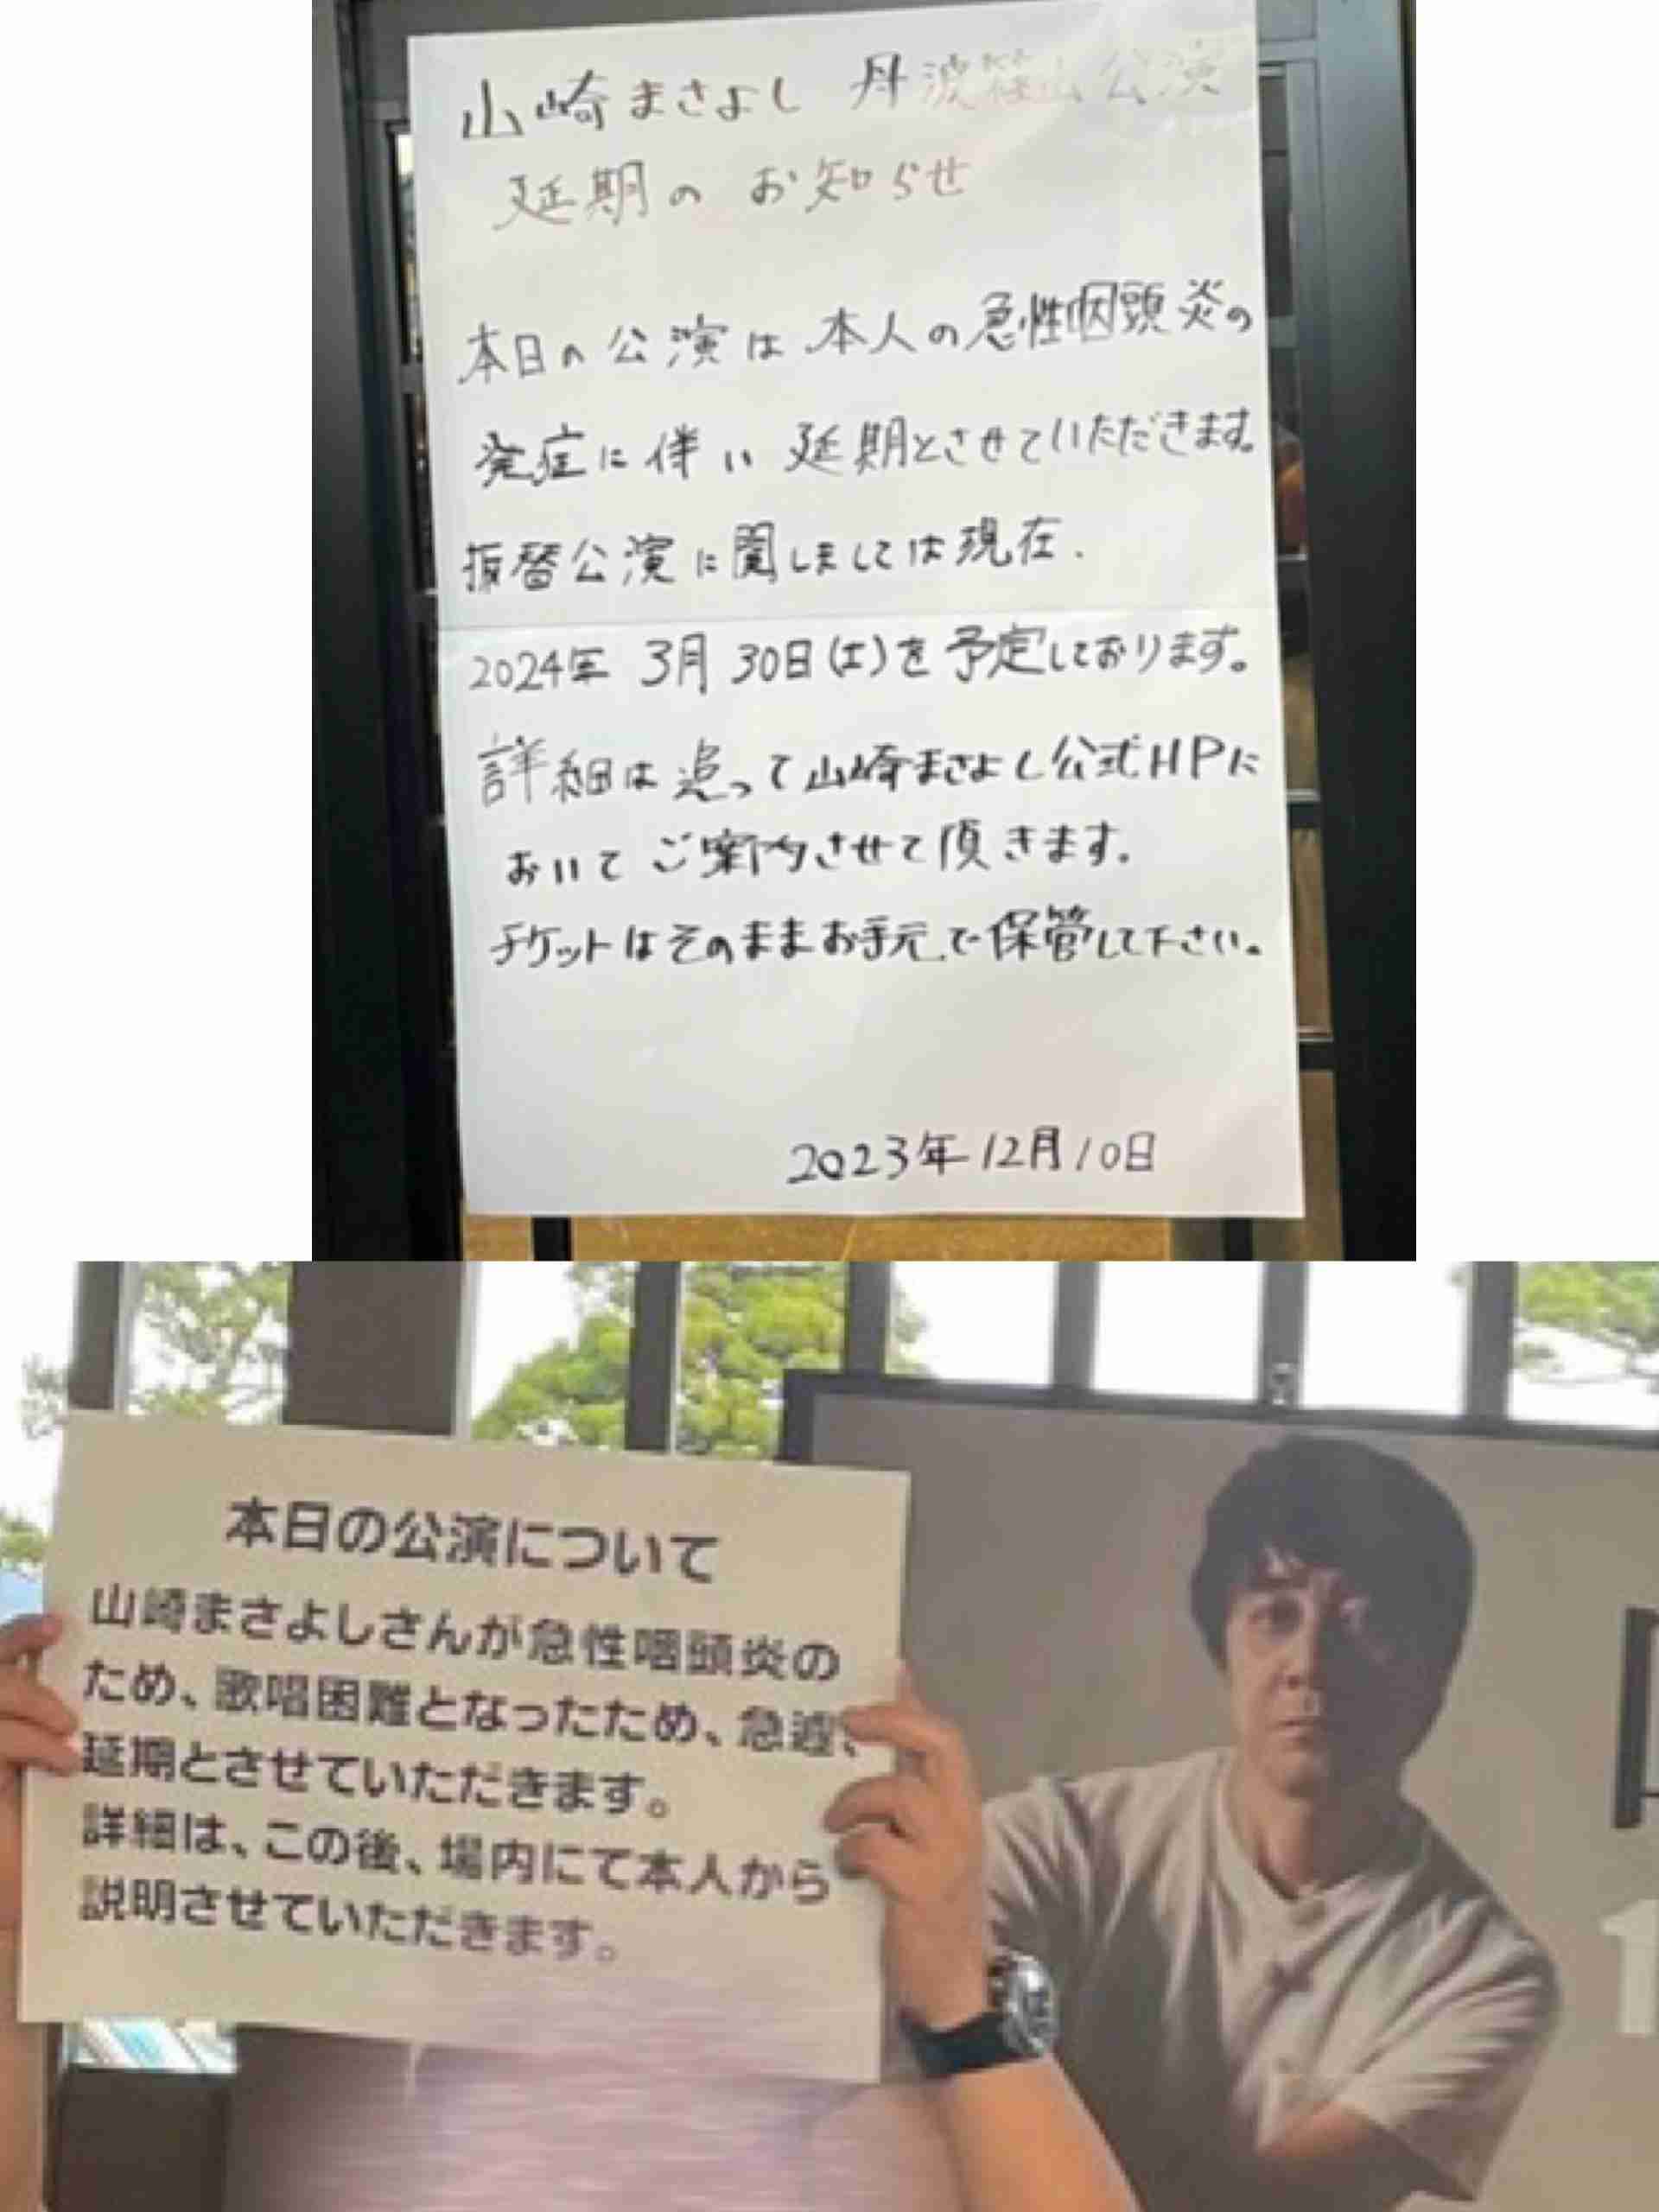 山崎まさよし 丹波篠山公演
延期のお知らせ
本日の公演は本人の急性咽頭炎の
発症に伴い延期とさせていただきます。
振替公演に関しましては現在、
2024年 3月 30日(土)を予定しております。
詳細は追って山崎まさよし公式HPに
おいてご案内させて頂きます。
チケットはそのままお手元で保管して下さい。
2023年12月10日
本日の公演について
山崎まさよしさんが急性咽頭炎の
ため、歌唱困難となったため、急遽、
延期とさせていただきます。
詳細は、この後、場内にて本人から
説明させていただきます。
1